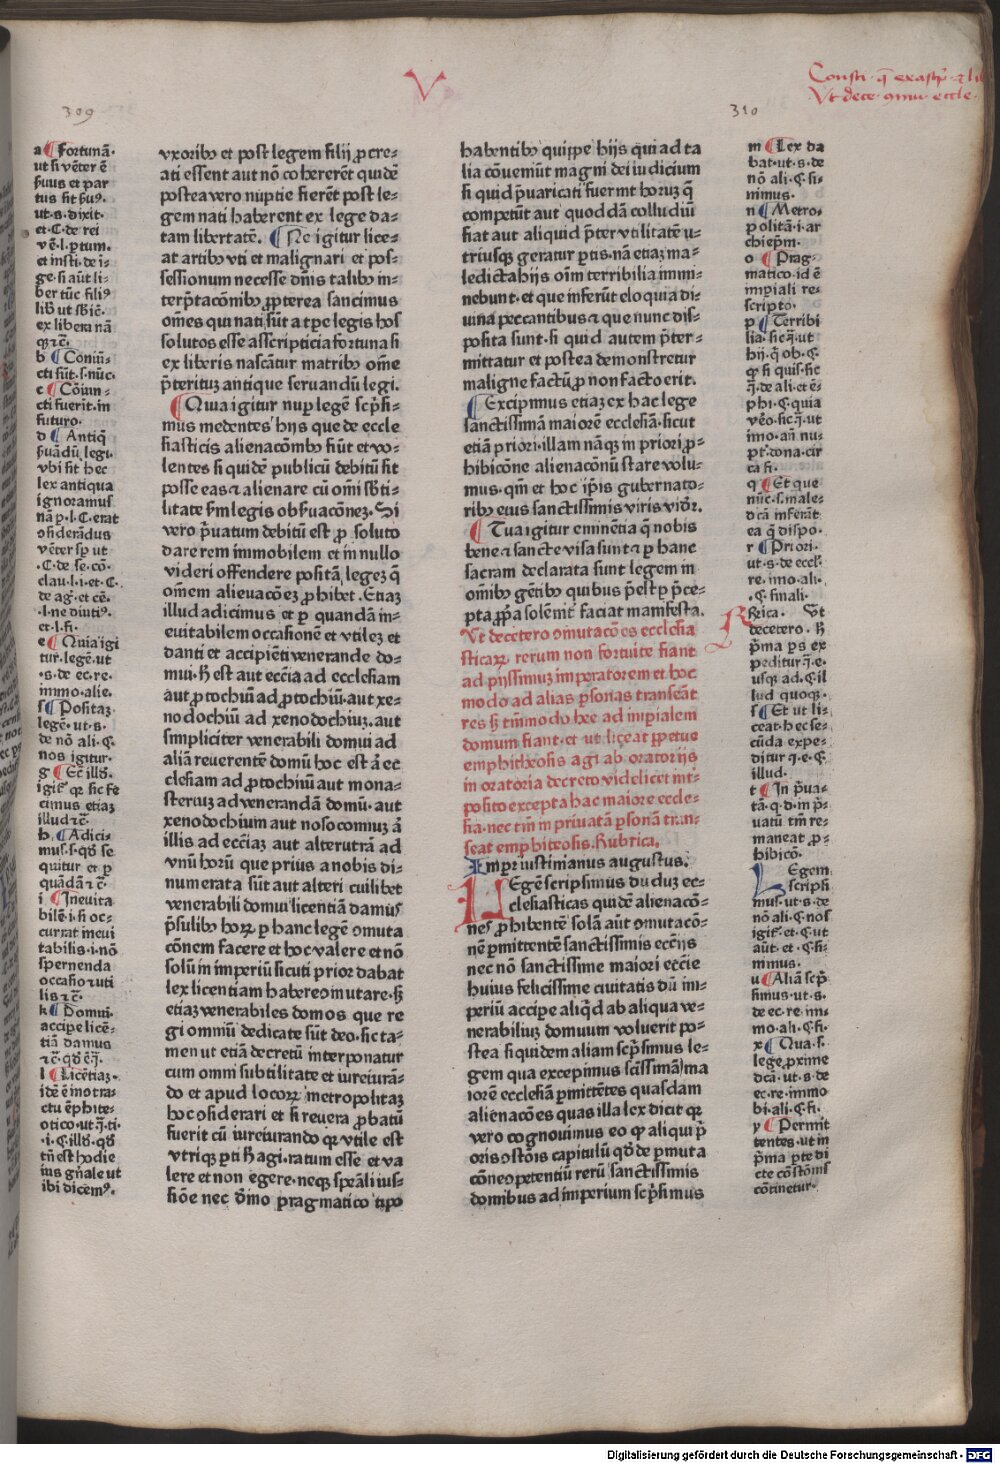 V
Consti. q̄
Vt dece. eccle.
309
310
a ¶ Fortunā.
ut si vēter ē
et par
ut.s. dixit.
et.C. de rei
vē.l. partum.
et insti. de i
ge. si aūt li
ber tūc fili9
ex libera nā
b ¶ Coniū
cti sūt.s. nūc.
cti fuerit. in
futuro.
d ¶ Antiq
ubi sit hec
lex antiqua
ignoramus
et.l.si.
e ¶ Quia igi
tur. legē. ut
.s. de ec. re.
immo. alie.
f ¶ Positaz
legē. ut.s.
de nō ali. C.
nos igitur.
cimus etiaz
h. ¶ Adici
i ¶ Ineuita
bilē. i. si oc
currat ineui
tabilis. i. nō
spernenda
k ¶ Domui.
accipe licē
tiā damus
l ¶ Licētiaz.
idē ē in otra
ibi dicem9.
vxoribꝰ et post legem filij ꝓcre
ati essent aut nō cohererēt quidē
postea vero nuptie fierēt post le
gem nati haberent ex lege da
tam libertatē. ¶ Ne igitur lice
at artibꝰ vti et malignari et pos
sessionum necesse dn̄is talibꝰ in
terp̄tacōnibꝰ ꝓpterea sancimus
om̄es qui nati sūt a tp̄e legis hos
solutos esse ascripticia fortuna si
ex liberis nascātur matribꝰ om̄e
p̄terituꝫ antique seruandū legi.
¶ Quia igitur nup legē sc̄psi
mus medentes hijs que de eccle
siasticis alienacōnibꝰ fiūt et vo
lentes si quidē publicū debitū sit
posse eas ⁊ alienare cū om̄i sb̄ti
litate scd̄m legis obseruacōneꝫ. Si
vero p̄uatum debitū est ꝓ soluto
dare rem immobilem et in nullo
videri offendere positā legeꝫ q̄
om̄em alienacōeꝫ ꝓhibet. Etiaꝫ
illud adicimus et ꝑ quandā in
euitabilem occasionē et vtileꝫ et
danti et accipiēti venerande do
mui. hoc est aut eccl̄ia ad ecclesiam
aut ꝓtochiū ad ꝓtochiū. aut xe
nodochiū ad xenodochiuꝫ. aut
simpliciter venerabili domui ad
aliā reuerentē domū hoc est ā ec
clesiam ad ꝓtochiū aut mona
steriuꝫ ad venerandā domū. aut
xenodochium aut nosocomiuꝫ ā
illis ad ecc̄iaꝫ aut alterutrā ad
vnū horū que prius a nobis di
numerata sūt aut alteri cuilibet
venerabili domui licentiā damus
p̄sulibꝰ hoꝝ ꝑ hanc legē omuta
cōnem facere et hoc valere et nō
solū in imperiū sicuti prior dabat
lex licentiam habere omutare. sꝫ
etiaꝫ venerabiles domos que re
gi omniū dedicate sūt deo. sic ta
men ut etiā decretū interponatur
cum omni subtilitate et iureiurā
do et apud locoꝝ metropolitaꝫ
hoc ꝯsiderari et si reuera ꝓbatū
fuerit cū iureiurando qꝫ vtile est
vtriqꝫ parti hagi. ratum esse et va
lere et non egere. neqꝫ spēali ius
sione nec diuino pragmatico tipo
habentibꝰ quippe hijs qui ad ta
lia cōueniūt magni dei iudicium
si quid p̄uaricati fuerint horuꝫ q̄
competūt aut quoddā colludiū
fiat aut aliquid p̄ter vtilitatē u
triusqꝫ geratur partis. nā etiaꝫ ma
ledicta hijs oīm terribilia immi
nebunt. et que inferūt eloquia di
uina peccantibus ⁊ que nunc dis
posita sunt. si quid autem p̄ter
mittatur et postea demonstretur
maligne factū ꝓ non facto erit.
¶ Excipimus etiaꝫ ex hac lege
sanctissimā maiorē ecclesiā. sicut
etiā priori. illam nāqꝫ in priori ꝓ
hibicōne alienacōnū stare volu
mus. qm̄ et hoc ip̄is gubernato
ribꝰ eius sanctissimis viris vidēr.
¶ Tua igitur eminētia q̄ nobis
bene ⁊ sancte visa sunt ⁊ ꝑ hanc
sacram declarata sunt legem in
om̄ibꝰ gētibꝰ quibus p̄est ꝑ p̄ce
pta ꝓpria solēnit̄ faciat manifesta.
Vt decetero omutacōes ecclesia
sticaꝝ rerum non fortuite fiant
ad pijssimuꝫ imperatorem et hoc
modo ad alias ꝑsonas transeāt
res sꝫ tm̄modo hec ad imperialem
domum fiant. et ut liceat ꝑpetue
emphitheosis agi ab oratorijs
in oratoria decreto videlicet int̄
posito excepta hac maiore eccle
sia. nec tm̄ in priuatā ꝑsonā tran
seat emphiteosis. Rubrica.
Imper iustinianus augustus.
Legē scripsimus duduꝫ ec
clesiasticas quidē alienacō
nes ꝓhibentē solā aūt omutacō
nē ꝑmittentē sanctissimis ecc̄ijs
nec nō sanctissime maiori ecc̄ie
huius felicissime ciuitatis dū im
periū accipe aliqd̄ ab aliqua ve
nerabiliuꝫ domuum voluerit po
stea si quidem aliam sc̄psimus le
gem qua excepimus scissimā ma
iorē ecclesiā ꝑmittētes quasdam
alienacōes quas illa lex dicit qꝫ
vero cognouimus eo qꝫ aliqui p̄
oris ostōis capitulū qd̄ de ꝑmuta
cōne opetentiū rerū sanctissimis
domibus ad imperium sc̄psimus
m ¶ Lex da
bat. ut.s. de
nō ali. C. si
nimus.
n ¶ Metro
politā. i. ar
chiep̄m.
o ¶ Prag
matico. id ē
imperiali re
scripto.
p ¶ Terribi
q ¶ Et que
nūc.s. male
dcā inferāt
ea q̄ dispo.
r ¶ Priori.
ut.s. de eccl.
re. imo. ali.
.C. finali.
Rbrica. Vt
decetero.
peditur q̄. e.
usqꝫ ad. C. il
lud quoqꝫ.
s ¶ Et ut li
ceat. hec se
cūda expe
ditur q̄. e. C.
illud.
t ¶ In p̄ua
maneat ꝓ
hibicō.
Legem
scripsi
mus. ut.s. de
nō ali. C. nos
nimus.
u ¶ Aliā sc̄p
simus. ut.s.
de ec. re im
mo. ali. C. fi.
x ¶ Qua.s.
lege proxime
dcā. ut.s. de
ec. re. immo
bi. ali. C. fi.
y ¶ Permit
tentes. ut in
cōtinetur.
Digitalisierung gefördert durch die Deutsche Forschungsgemeinschaft - DFG